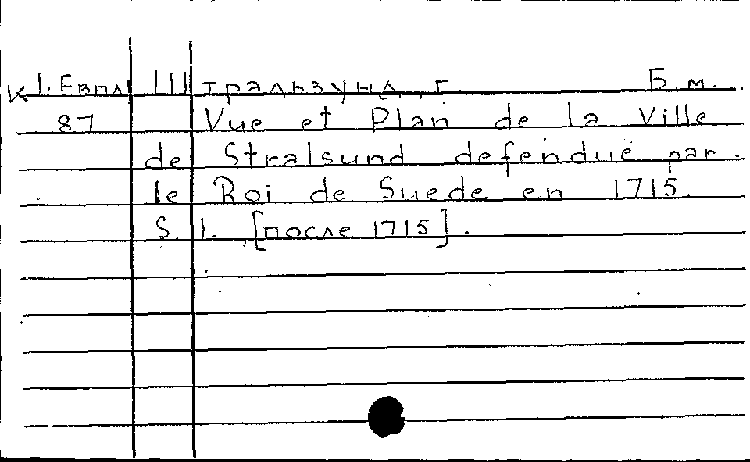 К 1. Евпл Штральзунд, г. Б. м.
87 Vue et Plan de la Ville
de Stralsund defendue par
le Roi de Suede en 1715.
S. l. [после 1715].